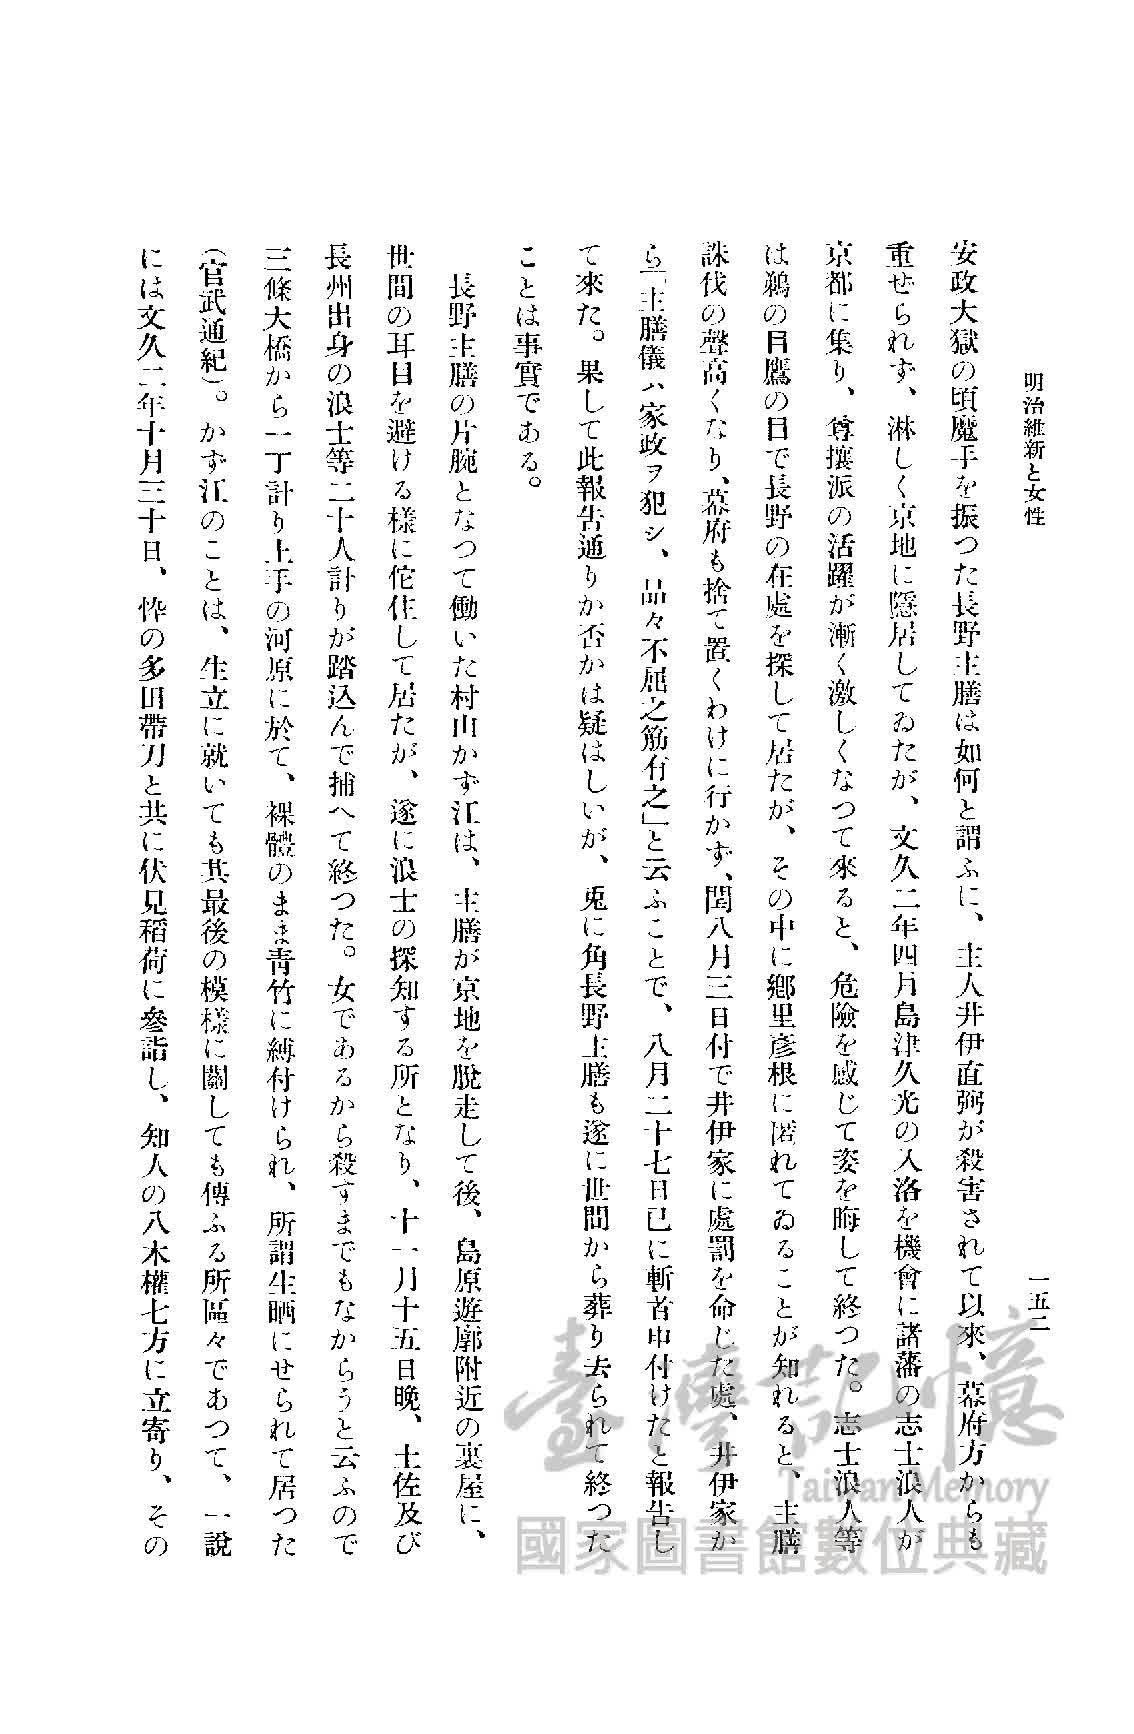 明治維新と女性
一五二
安政大獄の頃魔手を振つた長野主膳は如何と謂ふに、主人井伊直弼が殺害されて以來、幕府方からも
重せられず、淋しく京地に隱居してゐたが、文久二年四月島津久光の入洛を機會に諸藩の志士浪人が
京都に集り、尊攘派の活躍が漸く激しくなつて來ると、危險を感じて姿を晦して終つた。志士浪人等
は鵜の目鷹の目で長野の在處を探して居たが、その中に鄕里彥根に匿れてゐることが知れると、主膳
誅伐の聲高くなり、幕府も捨て置くわけに行かず、閏八月三日付で井伊家に處罰を命じた處、井伊家か
ら「主膳儀ハ家政ヲ犯シ、品々不屆之筋有之」と云ふことで、八月二十七日已に斬首申付けたと報告し
て來た。果して此報告通りか否かは疑はしいが、兎に角長野主膳も遂に世間から葬り去られて終つた
ことは事實である。
長野主膳の片腕となつて働いた村山かず江は、主膳が京地を脫走して後、島原遊廓附近の裏屋に、
世間の耳目を避ける樣に佗住して居たが、遂に浪士の探知する所となり、十一月十五日晚、土佐及び
長州出身の浪士等二十人計りが踏込んで捕へて終つた。女であるから殺すまでもなからうと云ふので
三條大橋から一丁計り上手の河原に於て、裸體のまま靑竹に縛付けられ、所謂生晒にせられて居つた
(官武通紀)。かず江のことは、生立に就いても其最後の模樣に關しても傳ふる所區々であつて、一說
には文久二年十月三十日、悴の多田帶刀と共に伏見稻荷に參詣し、知人の八木權七方に立寄り、その
臺灣記憶
Taiwan Memory
國家圖書館數位典藏